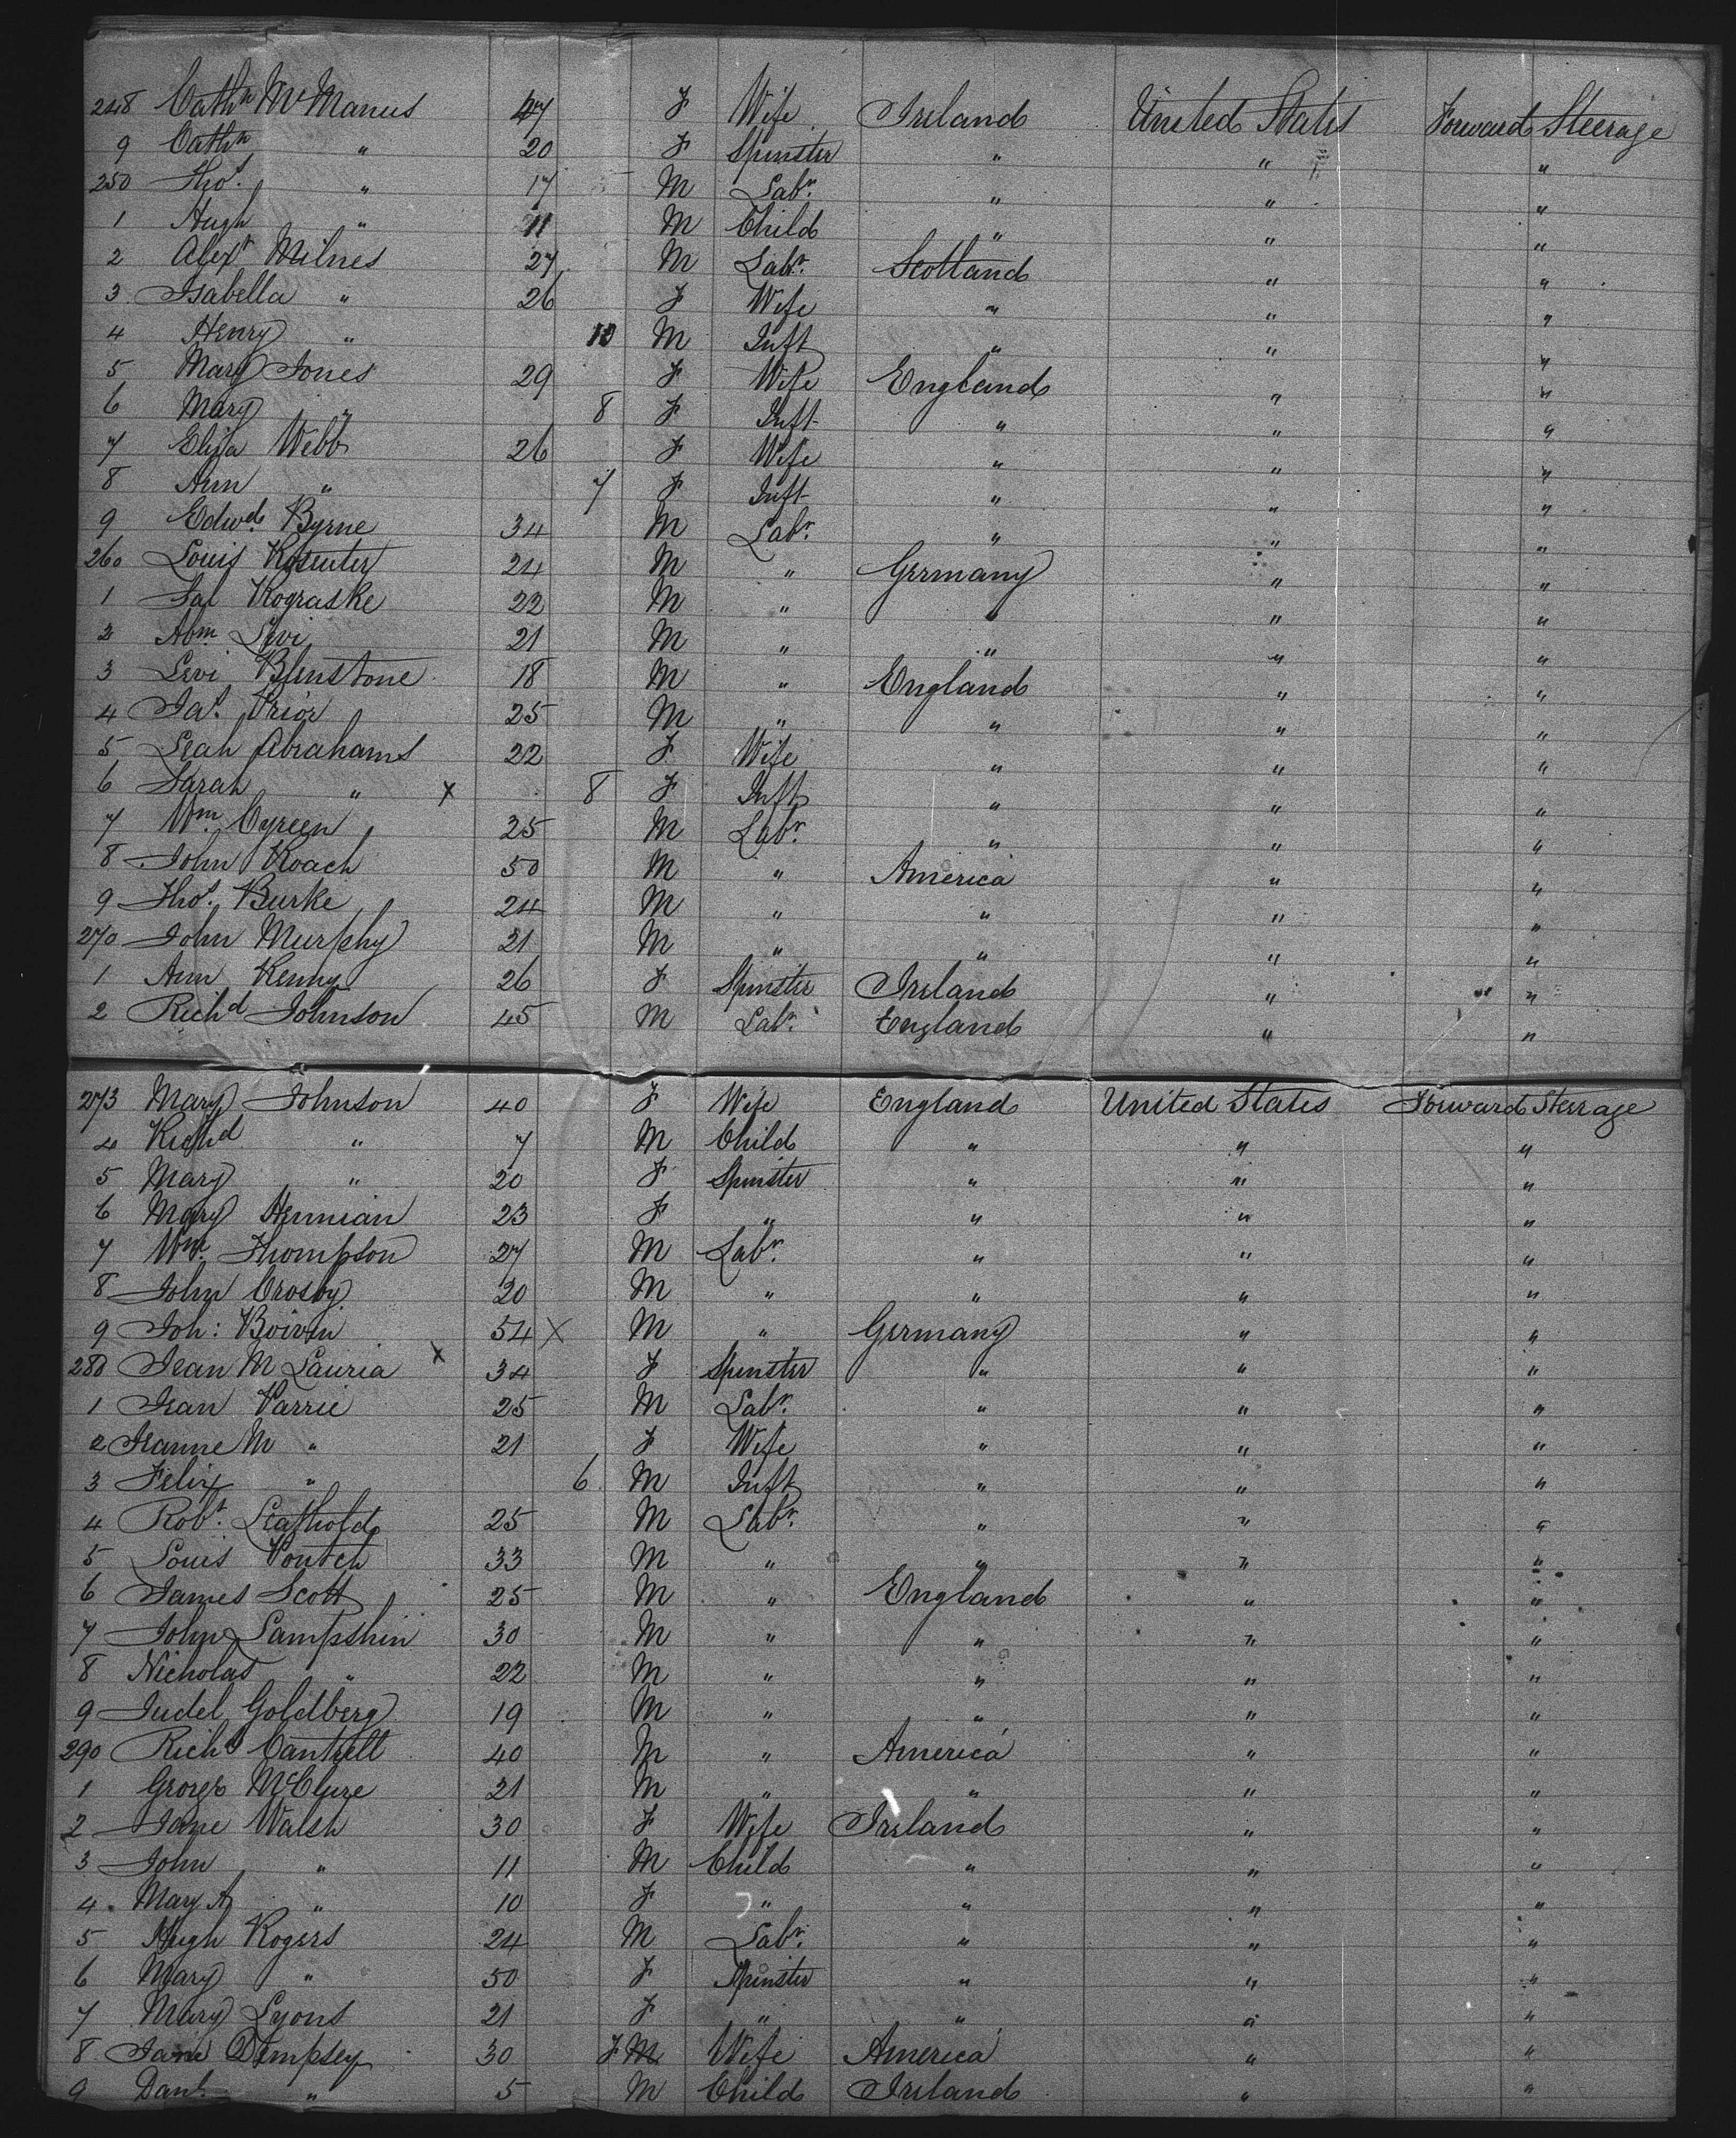 248 Cathn McManus 47 F Wife Ireland United States Forward Steerage
9 Cathn " 20 F Spinster " " "
250 Thos. " 17 M Labr. " " "
1 Hugh " 11 M Child " " "
2 Alexr Milnes 27 M Labr. Scotland " "
3 Isabella " 26 F Wife " " "
4 Henry " 10 M Inft " " "
5 Mary Jones 29 F Wife England " "
6 Mary " 8 F Inft " " "
7 Eliza Webb 26 F Wife " " "
8 Ann " 7 F Inft " " "
9 Edwd. Byrne 34 M Labr. " " "
260 Louis 24 M " Germany " "
1 Sal Rograske 22 M " " " "
2 Abm Levi 21 M " " " "
3 Levi Blinstone 18 M " England " "
4 Jas. Prior 25 M " " " "
5 Leah Abrahams 22 F Wife " " "
6 Sarah " X 8 F Inft " " "
7 Wm. Cyreen 25 M Labr. " " "
8 John Roach 50 M " America " "
9 Thos. Burke 24 M " " " "
270 John Murphy 21 M " " " "
1 Ann Kenny 26 F Spinster Ireland " "
2 Richd Johnson 45 M Labr. England " "
273 Mary Johnson 40 F Wife England United States Forward Steerage
4 Richd " 7 M Child " " "
5 Mary " 20 F Spinster " " "
6 Mary Hennian 23 F " " " "
7 Wm. Thompson 27 M Labr. " " "
8 John Crosby 20 M " " " "
9 Joh: Boivin 54 X M " Germany " "
280 Jean M Lauria X 34 F Spinster " " "
1 Jean Parrie 25 M Labr. " " "
2 Jeanne M " 21 F Wife " " "
3 Felix " 6 M Inft " " "
4 Robt. Leafhold 25 M Labr. " " "
5 Louis Poutch 33 M " " " "
6 James Scott 25 M " England " "
7 John Sampshin 30 M " " " "
8 Nicholas " 22 M " " " "
9 Judel Goldberg 19 M " " " "
290 Richd Cantrell 40 M " America " "
1 George McClure 21 M " " " "
2 Jane Walsh 30 F Wife Ireland " "
3 John " 11 M Child " " "
4 Mary A " 10 F " " " "
5 Hugh Rogers 24 M Labr. " " "
6 Mary " 50 F Spinster " " "
7 Mary Lyons 21 F " " " "
8 Jane Dempsey 30 F M Wife America " "
9 Danl. " 5 M Child Ireland " "